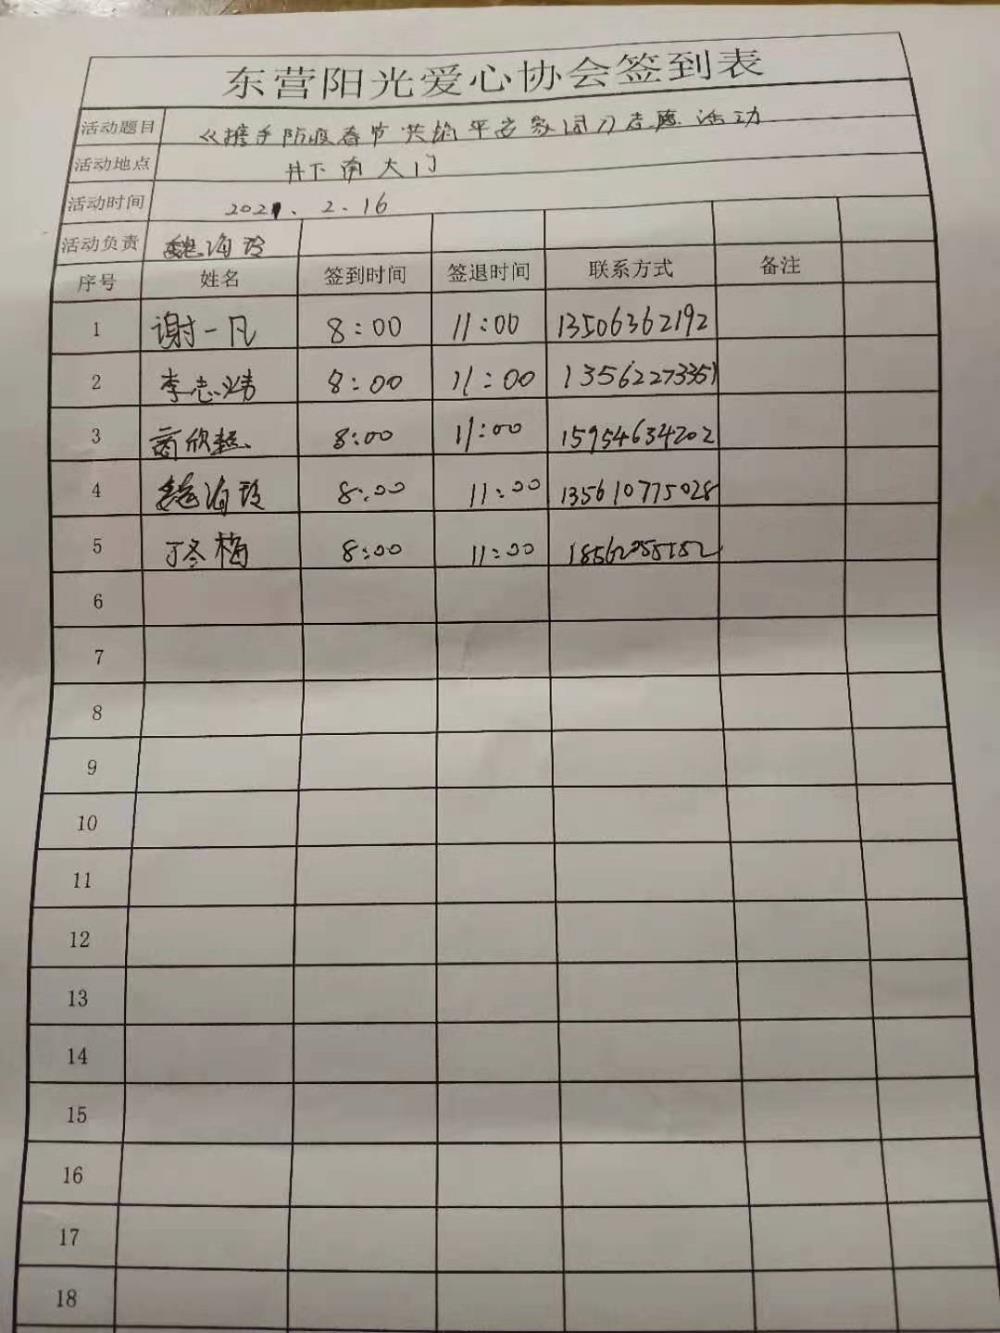 东营阳光爱心协会签到表
活动题目 《携手防疫春节 共筑平安家园》志愿活动
活动地点 井下南大门
活动时间 2021.2.16
活动负责 魏海玲
序号 姓名 签到时间 签退时间 联系方式 备注
1 谢一凡 8:00 11:00 13506362192
2 李志炜 8:00 11:00 13562273351
3 商欣超 8:00 11:00 15954634202
4 魏海玲 8:00 11:00 135610775028
5 丁冬梅 8:00 11:00
6
7
8
9
10
11
12
13
14
15
16
17
18